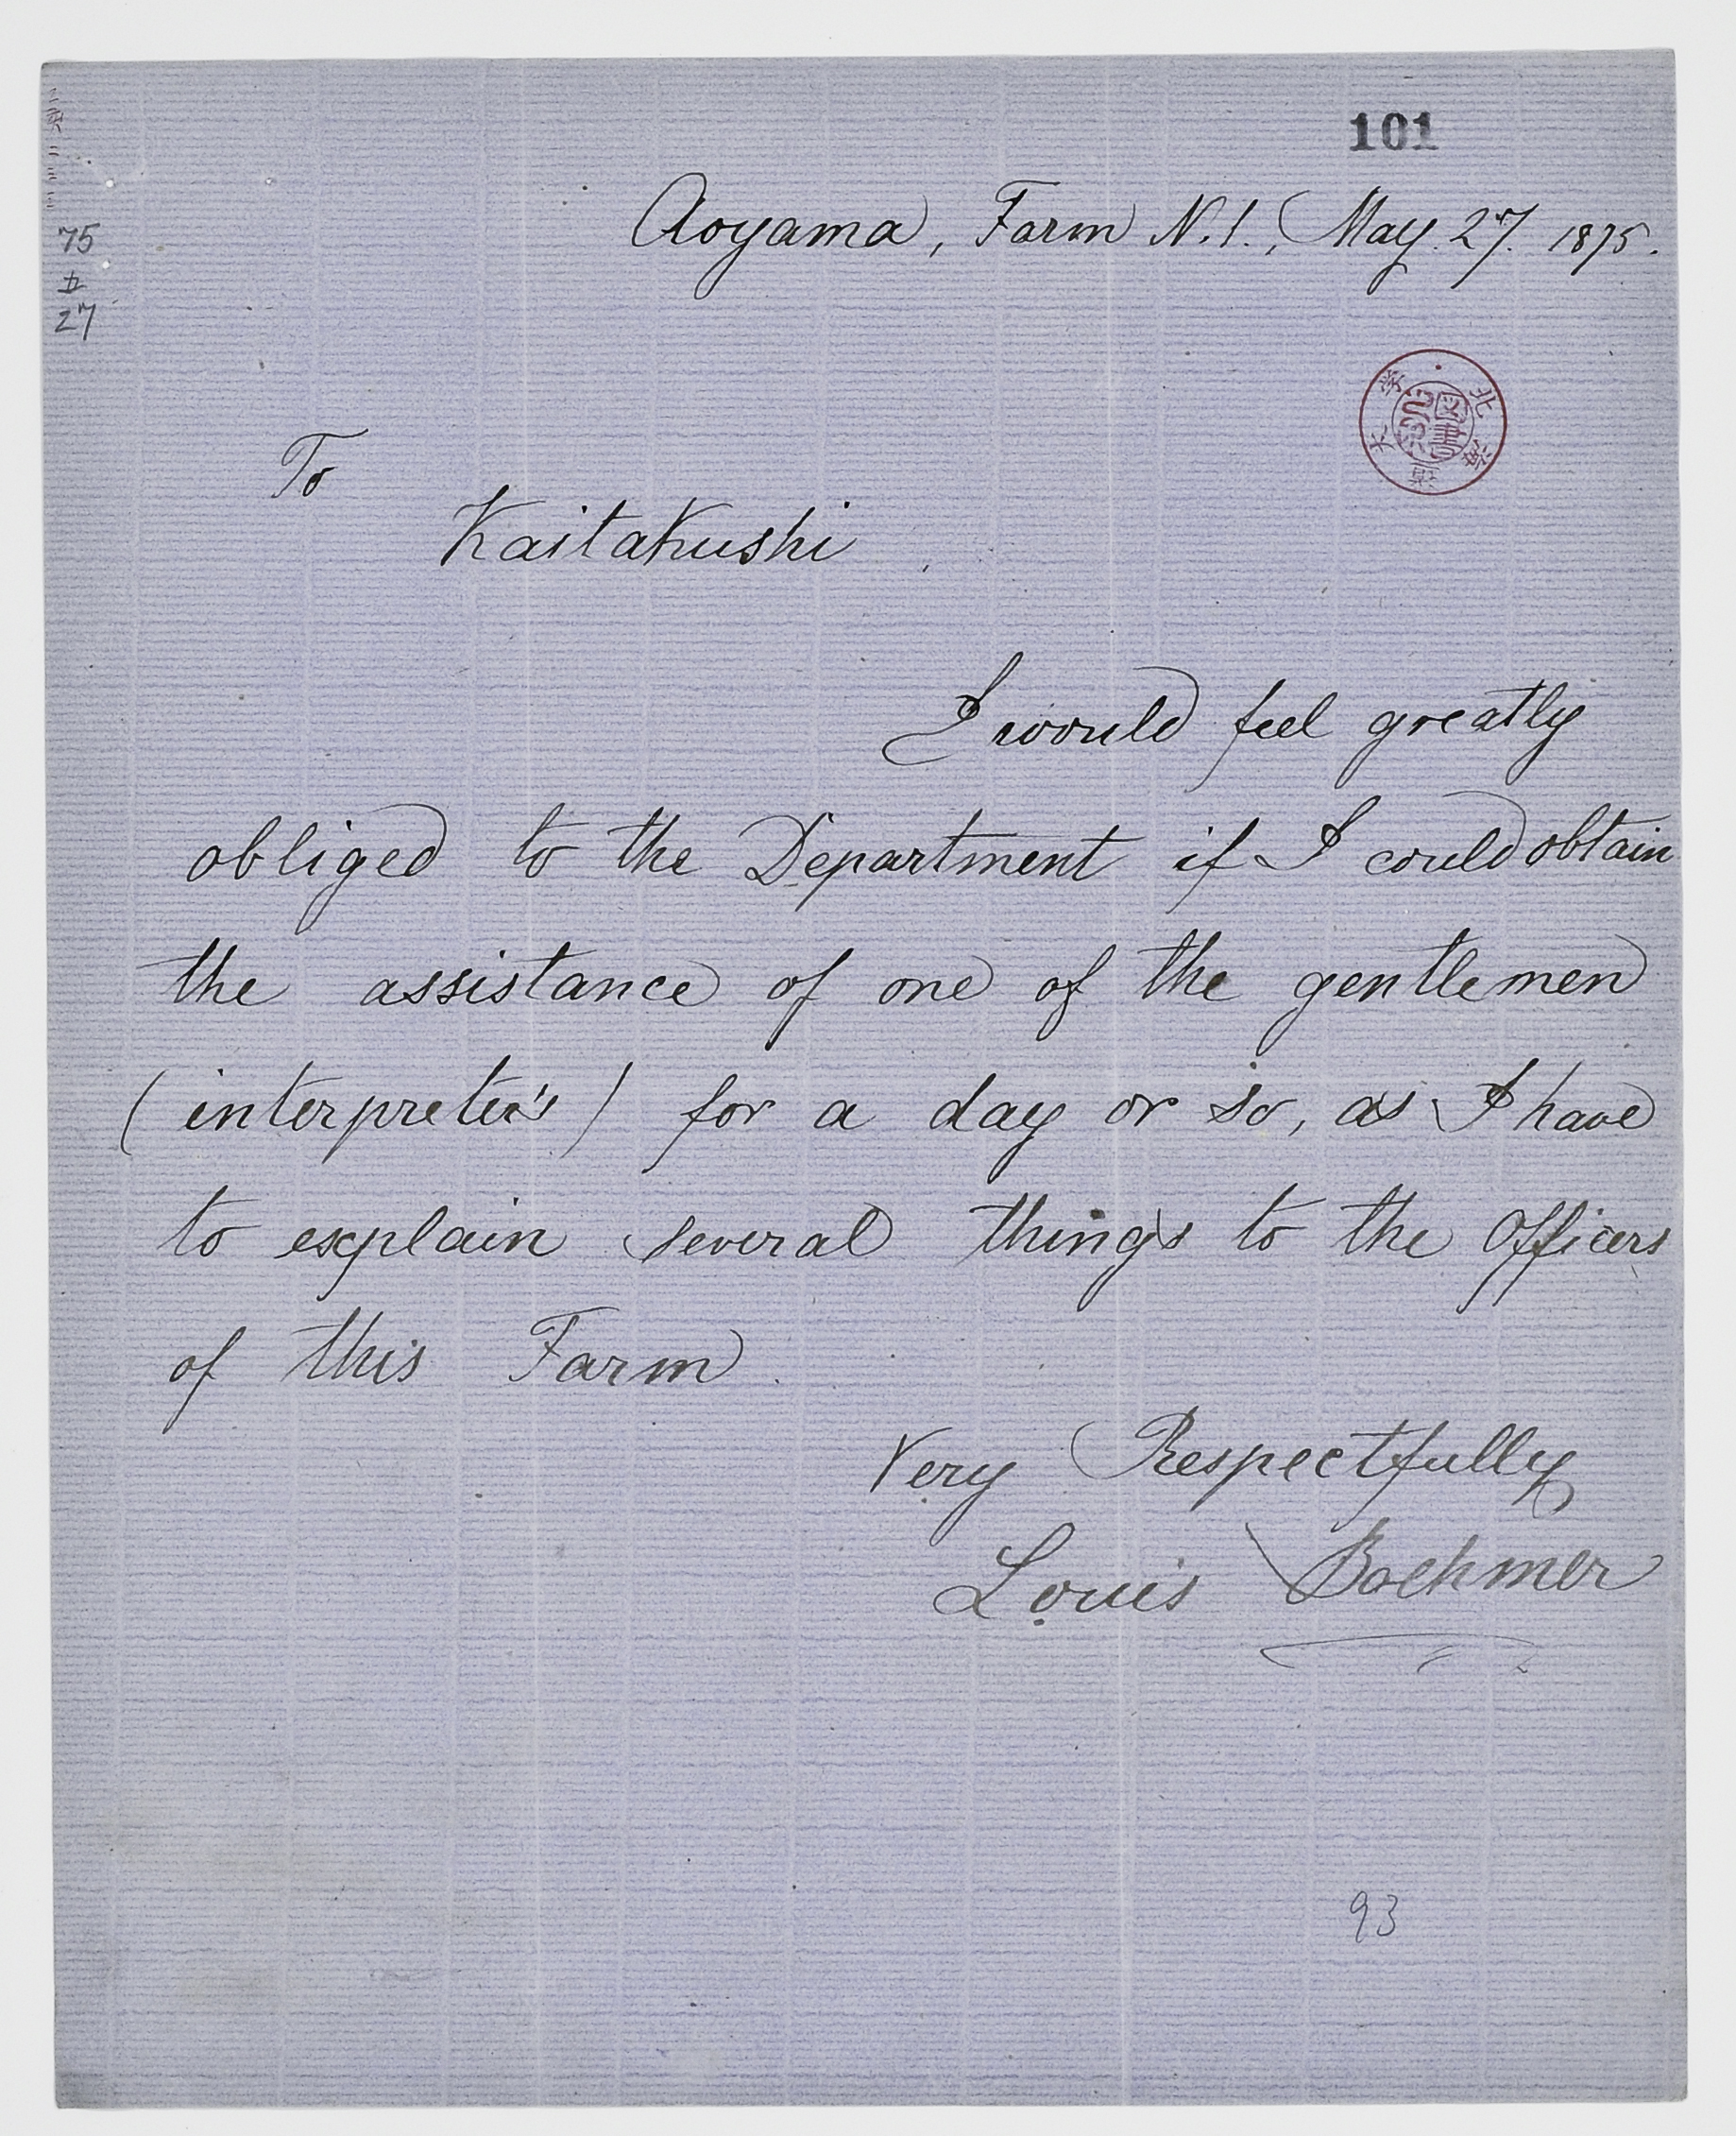 101
Aoyama, Farm N.1., May. 27. 1875.
75
五
27
北海道大学
図書
To
Kaitakushi
I would feel greatly
obliged to the Department if I could obtain
the assistance of one of the gentlemen
(interpreter's) for a day or so, as I have
to explain several things to the Officers
of this Farm.
Very Respectfully
Louis Boehmer
93